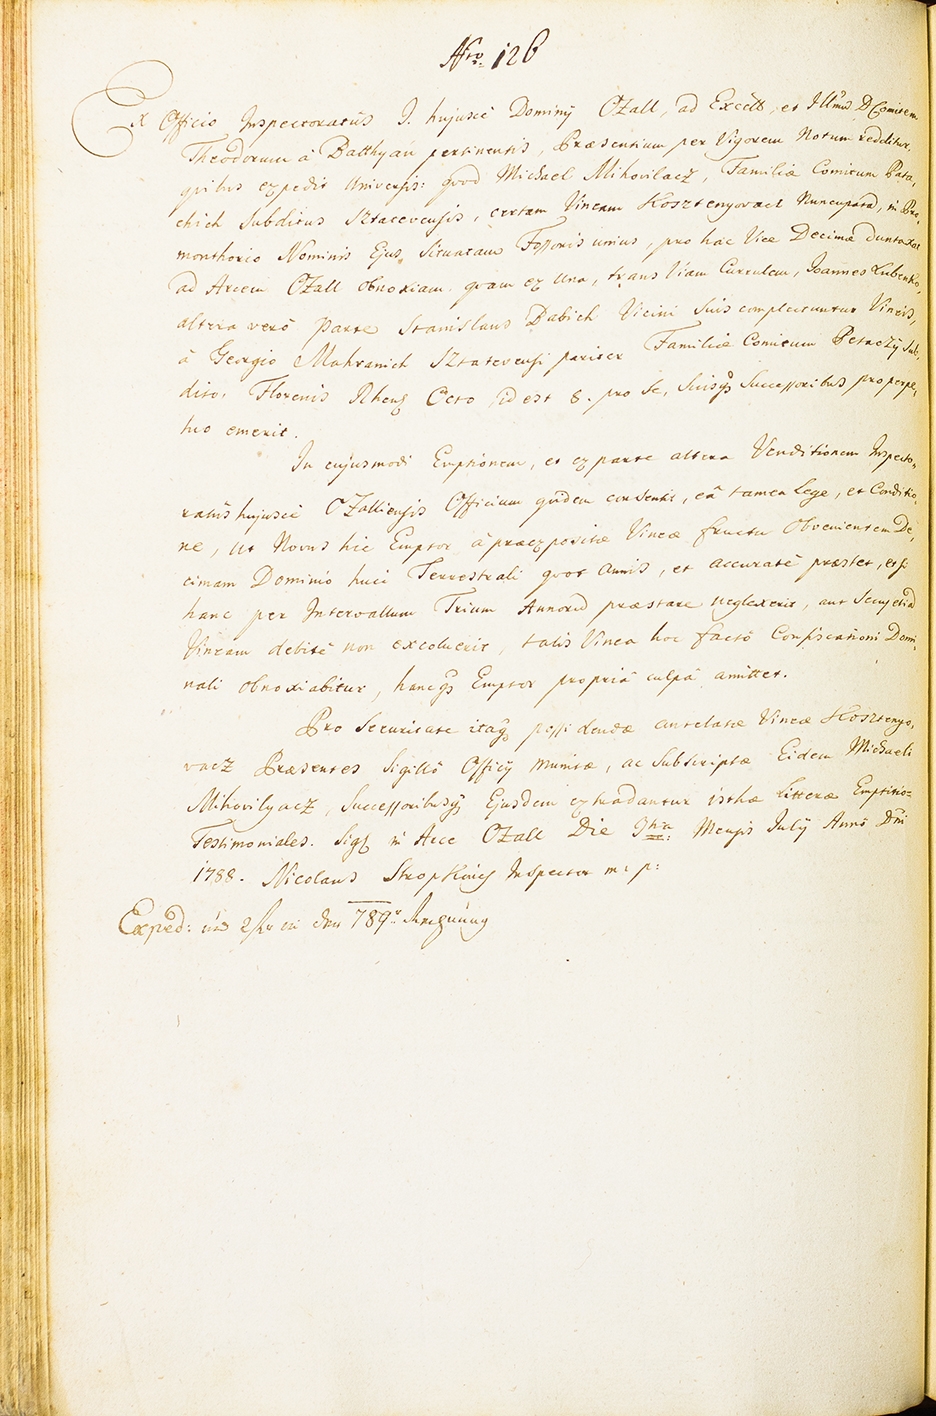 Nro. 126
Ex Officio Inspectoratûs I. hujusce Dominÿ OZall, ad Excell. et Illmū D. Comitem
Theodorum à Batthyán pertinentis, Præsentium per Vigorem Notum redditur
quibus expedit Universis: quod Michael Mihovilacz, Familiæ Comitum Pata,
chich Subditus Sztatevensis, certam Vineam Kosztenyovacz Nuncupatā, in Pro,
monthorio Nominis Ejus Situatam Fossoris unius, pro hac Vice Decimæ duntaxat
ad Arcem OZall obnoxiam quam ex una, trans Viam Currulem, Joannes Lubenko,
altera verò Parte Stanislaus Dabich Vicini Suis complectuntur Vineis,
à Georgio Mahranich Sztatevensi pariter Familiæ Comitum Petaczÿ Sub,
dito, Florenis Rhens Octo id est 8. pro Se, Suisq3 Successoribus pro perpe,
tuo emerit.
In cujusmodi Emptionem, et ex parte altera Venditionem Inspecto,
ratûs hujusce OZalliensis Officium quidem consentit, eâ tamen Lege, et Conditio,
ne, ut Novus hic Emptor à præexpositæ Vineæ fructu Obvenientem De,
cimam Dominio huic Terrestrali quot Annis, et accuratè præstet, et si
hanc per Intervallum Trium Annorū præstare neglexerit, aut Secus etiā
Vineam debitè non excoluerit, talis Vinea hoc factô Confiscationi Domi,
nali obnoxiabitur, hancq3 Emptor propriâ culpâ amittet.
Pro Securitate itaq3 possidendæ antelatæ Vineæ Kosztenyo,
vacz Præsentes Sigillô Officÿ munitæ, ac Subscriptæ Eidem Michaeli
Mihovilyacz, Successoribusq3 Ejusdem extradantur isthæ Litteræ Emptitio=
Testimoniales. Sig in Arce OZall Die 9na Mensis Julÿ Annô Dni
1788. Nicolaus Inspector m: p:
Exped: in den 789r